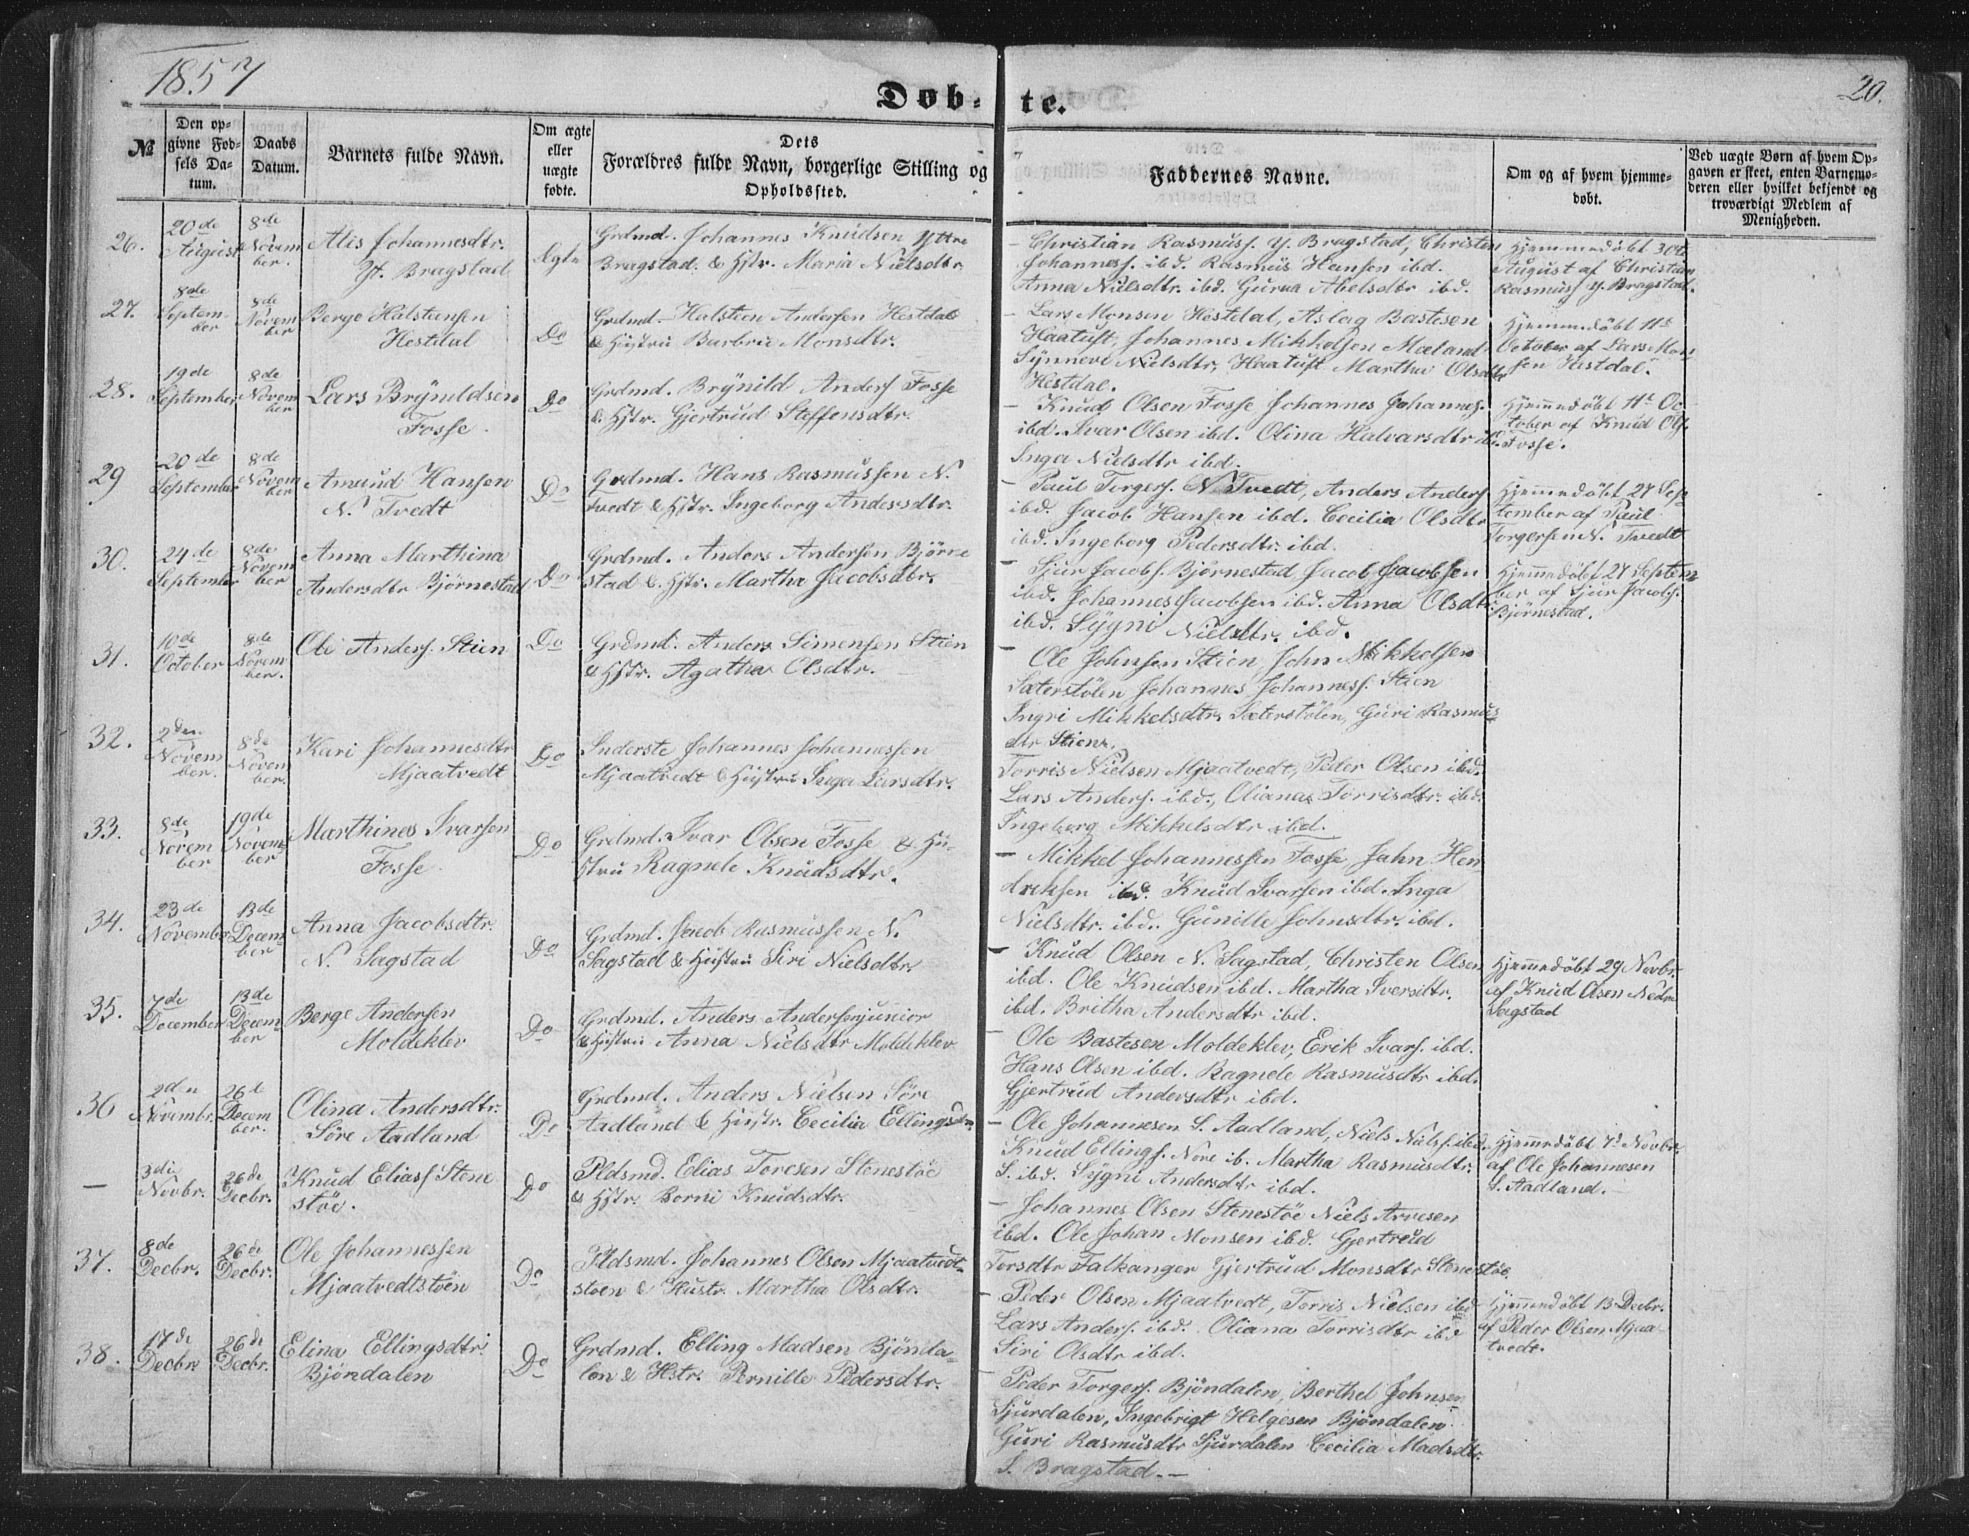 1857
Døb-
te.
20.
№
Den op-
givne Fød-
sels Da-
tum.
Daabs
Datum.
Barnets fulde Navn.
Om ægte
eller
uægte
fødte.
Dets
Forældres fulde Navn, borgerlige Stilling og
Opholdssted.
Faddernes Navne.
Om og af hvem hjemme-
døbt.
Ved uægte Børn af hvem Op-
gaven er skeet, enten Barnemo-
deren eller hvilket bekjendt og
troværdigt Medlem af
Menigheden.
26.
20de
August
8de
Novem
ber.
Alis Johannesdtr.
Yt. Bragstad
Ægte
Grdmd. Johannes Knudsen Yttre
Bragstad. & Hstr. Maria Nielsdtr.
– Christian Rasmuss. Y. Bragstad, Christen
Johanness. ibd. Rasmus Hansen ibd.
Anna Nielsdtr. ibd. Gurua Abelsdtr ibd.
Hjemmedøbt 30te
August af Christian
Rasmuss Y. Bragstad.
27.
8de
Septem
ber
8de
Novem
ber
Berge Halstensen
Hestdal
Do
Grdmd. Halsten Andersen Hestdal
& Hustru Barbrie Monsdtr.
– Lars Monsen Hestdal, Aslag Bastesen
Haatuft, Johannes Mikkelsen Mæland
Synneve Nielsdtr, Haatuft Martha Olsdtr
Hestdal.
Hjemmedøbt 11te
October af Lars Mon
sen Hestdal.
28.
19de
September
8de
Novem
ber
Lars Brynildsen
Fosse
Do
Grdmd. Brynild Anders. Fosse
& Hstr. Gjertrud Steffensdtr.
– Knud Olsen Fosse Johannes Johanness.
ibd. Ivar Olsen ibd. Olina Halvarsdtr ib.
Inga Nielsdtr ibd.
Hjemmedøbt 11t Oc
tober af Knud Ols.
Fosse.
29
20de
September
8de
Novem
ber
Amund Hansen
N. Tvedt
Do
Grdmd. Hans Rasmussen N.
Tvedt & Hstr. Ingeborg Andersdtr.
– Paul Torgers. N. Tvedt, Anders Anders
ibd. Jacob Hansen ibd. Cecilia Olsdtr
ibd. Ingeborg Pedersdtr. ibd.
Hjemmedøbt 27 Sep
tember af Paul
Torgersen N. Tvedt
30.
24de
September
8de
Novem
ber
Anna Marthina
Andersdtr Bjørnestad
Do
Grdmd. Anders Andersen Bjørne
stad & Hstr. Martha Jacobsdtr.
– Sjur Jacobs. Bjørnestad, Jacob Jacobsen
ibd. Johannes Jacobsen ibd. Anna Olsdtr
ibd. Sygni Nielsdtr. ibd.
Hjemmedøbt 27 Septem
ber af Sjur Jacobs.
Bjørnestad.
31.
10de
October
8de
Novem
ber.
Ole Anders. Stien
Do
Grdmd. Anders Simensen Stien
& Hstr. Agatha Olsdtr.
– Ole Johnsen Stien, John Mikkelsen
Sæterstølen Johannes Johanness. Stien
Ingri Mikkelsdtr. Sæterstølen, Guri Rasmus
dtr Stien.
32.
2den
Novem
ber.
8de
Novem
ber.
Kari Johannesdtr
Mjaatvedt
Do
Inderste Johannes Johannessen
Mjaatvedt & Hustru Inga Larsdtr.
Torris Nielsen Mjaatvedt, Peder Olsen ibd.
Lars Anders. ibd., Oliana Torrisdtr. ibd.
Ingeborg Mikkelsdtr ibd.
33.
8de
Novem
ber
19de
Novem
ber
Marthines Ivarsen
Fosse
Do
Grdmd. Ivar Olsen Fosse & Hu-
stru Ragnele Knudsdtr.
– Mikkel Johannessen Fosse, Jahn Hen
driksen ibd. Knud Ivarsen ibd. Inga
Nielsdtr. ibd. Gunille Johnsdtr. ibd.
34.
23de
November
13de
Decem
ber
Anna Jacobsdtr.
N. Sagstad
Do
Grdmd. Jacob Rasmussen N.
Sagstad & Hustru Siri Nielsdtr.
– Knud Olsen N. Sagstad, Christen Olsen
ibd. Ole Knudsen ibd. Martha Iversdtr.
ibd. Britha Andersdtr ibd.
Hjemmedøbt 29 Novbr.
af Knud Olsen Nedre
Sagstad
35.
7de
December
13de
Decem
ber
Berge Andersen
Moldeklev
Do
Grdmd. Anders Andersen junior
& Hustru Anna Nielsdtr Moldeklev
– Ole Bastesen Moldeklev, Erik Ivars. ibd.
Hans Olsen ibd. Ragnele Rasmusdtr ibd.
Gjertrud Andersdtr ibd.
36
2dn
Novembr.
26d
Decem
ber.
Olina Andersdtr.
Søre Aadland
Do
Grdmd. Anders Nielsen Søre
Aadland & Hustr. Cecilia Ellingsdtr.
– Ole Johannesen S. Aadland, Niels Niels. ibd.
Knud Ellings. Nore ib. Martha Rasmusdtr.
S. ibd. Sygni Andersdtr ibd.
Hjemmedøbt 7d Novbr.
af Ole Johannesen
S. Aadland. –
–
3di
Novbr.
26de
Decbr.
Knud Eliass Stene
støe.
Do
Pldsmd. Elias Toresen Stenestøe
& Hstr. Borni Knudsdtr.
– Johannes Olsen Stenestøe Niels Arnesen
ibd. Ole Johan Monsen ibd. Gjertrud
Torsdtr Falkanger Gjertrud Monsdtr Stenestøe.
37.
8de
Decbr.
26de
Decbr.
Ole Johannessen
Mjaatvedtstøen
Do
Pldsmd. Johannes Olsen Mjaatvedt-
støen & Hustr. Martha Olsdtr.
– Peder Olsen Mjaatvedt, Torris Nielsen ibd
Lars Anders. ibd. Oliana Torrisdtr ibd
Siri Olsdtr ibd.
Hjemmedøbt 13 Decbr.
af Peder Olsen Mjaa
tvedt.
38.
17de
Decbr.
26de
Decbr.
Elina Ellingsdtr.
Bjøndalen
Do
Grdmd. Elling Madsen Bjønda-
len & Hstr. Pernille Pedersdtr.
– Peder Torgers. Bjøndalen, Berthel Johnsen
Sjurdalen, Ingebrigt Helgesen Bjøndalen
Guri Rasmusdtr Sjurdalen Cecilia Madsdtr.
S. Bragstad. –